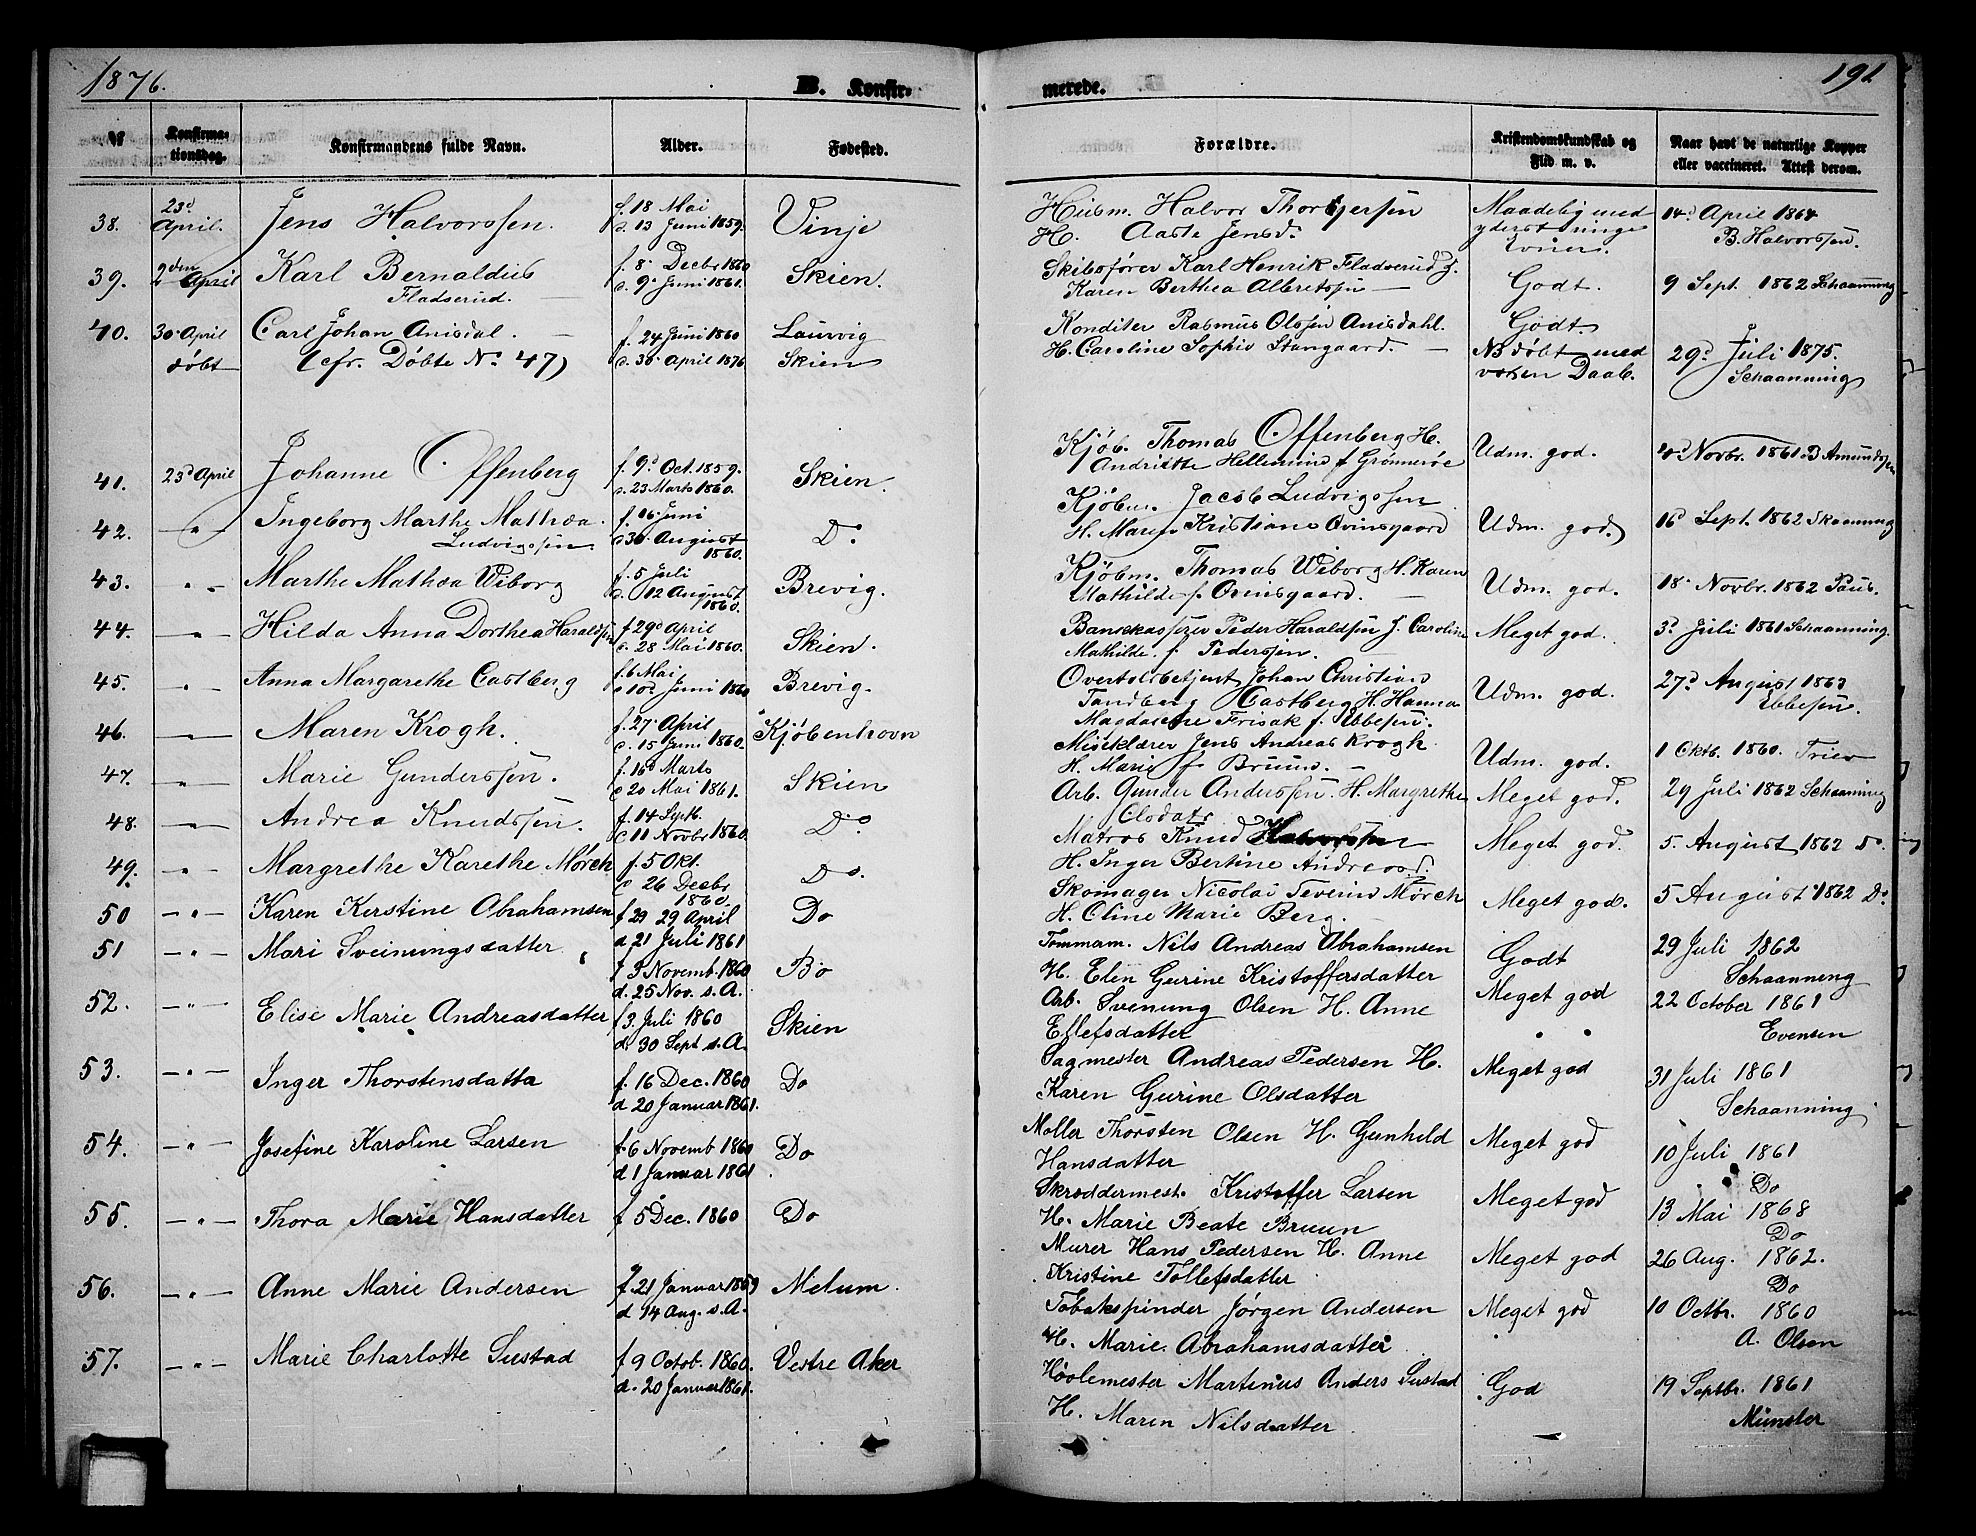 1876.
B. Konfir-
№
Konfirma-
tionsdag.
Konfirmandens fulde Navn.
Alder.
Fødested.
38.
23d
April.
Jens Halvorssen.
f. 18 Mai
d. 13 Juni 1859.
Vinje
39.
2den
April
Karl Bernaldus
Fladserud.
f. 8. Decbr 1860
d. 9. Juni 1861.
Skien.
40.
30. April
døbt
Carl Johan Anisdal.
(cfr. Døbte No. 47)
f. 24 Juni 1860
d. 30. April 1876
Laurvig
Skien
41.
23d April
Johanne Offenberg
f. 9d Oct. 1859.
d. 23 Marts 1860.
Skien.
42.
— " —
Ingeborg Marthe Mathea
Ludvigssen
f. 16. Juni
d. 30. August
1860.
Do
43.
" —
Marthe Mathea Wiborg
f. 5 Juli
d. 12 August
1860.
Brevig.
44.
— " —
Hilda Anna Dorthea Haraldsen
f. 29d April
d. 28 Mai 1860.
Skien.
45.
— " —
Anna Margarethe Castberg
f. 6 Mai
d. 10d Juni 1860
Brevig.
46.
— " —
Maren Krogh.
f. 27. April
d. 15 Juni 1860.
Kjøbenhavn
47.
— " —
Marie Gunderssen.
f. 16d Marts
d 20 Mai 1861.
Skien
48.
— " —
Andrea Knudssen.
f. 14 Septb.
d 11 Novbr 1860.
Do
49.
— " —
Margrethe Karethe Mørch
f. 5 Okt.
d 26 Decbr
1860.
Do.
50
— " —
Karen Kerstine Abrahamsen
f 29 29 April
d 21 Juli 1861
Do
51
— " —
Mari Sveinungsdatter
f 3 Novemb. 1860
d. 25 Nov. s. A.
Bø
52.
— " —
Elise Marie Andreasdatter
f 3. Juli 1860
d. 30 Sept s. A.
Skien
53.
— " —
Inger Thorstensdatta
f. 16 Dec. 1860
d 20 Januar 1861.
Do
54.
— " —
Josefine Karoline Larsen
f. 6 Novemb 1860
d 1 Januar 1861
Do
55.
— " —
Thora Marie Hansdatter
f 5 Dec. 1860
Do
56.
— " —
Anne Marie Andersen
f. 21 Januar 1859
d 14 Aug. s. A.
Melum.
57.
— " —
Marie Charlotte Sustad
f 9 Octob. 1860.
d. 20 Januar 1861.
Vestre Aker
merede.
191
Forældre.
Kristendomskundskab og
Flid m. v.
Naar havt de naturlige Kopper
eller vaccineret. Attest derom.
Husm. Halvor Thorbjersen
H. Aaste Jensd.
Maadelig med
yderst ringe
Evner.
14d April 1864
B. Halvorssen.
Skibsfører Karl Henrik Fladserud
Karen Berthea Albretsen —
Godt.
9 Sept. 1862 Schaanning
Konditer Rasmus Olssen Anisdahl.
H. Caroline Sophie Stangaard. —
Godt.
NB døbt med
voxen Daab.
29d Juli 1875.
Schaanning
Kjøb. Thomas Offenberg H.
Andriette Hellemine f Grønnerøe
Udm. god.
4d Novbr. 1861. B Amundssen
Kjøbm. Jacob Ludvigssen
H. Maren Kristiane Ovinsgaard
Udm. god.
16d Sept. 1862 Skaanning
Kjøbm. Thomas Wiborg H. Karen
Mathilde f Ovinsgaard. —
Udm. god.
18. Novbr. 1862 Paus.
Bankkasserer Peder Haraldsen H. Caroline
Mathilde. f. Pederssen.
Meget god.
3d Juli 1861 Schaanning.
Overtoldbetjent Johan Christian
Tandberg Castberg H. Hanna
Magdalene Frisak f. Ebbesen.
Udm. god.
27d August 1863
Ebbesen.
Jens Andreas Krogh
H. Marie f Bruun. —
Udm. god.
1 Oktb. 1860. Trier
Arb. Gunder Anderssen. H. Margrethe
Clodats
Meget god.
29 Juli 1862 Schaanning
Matros Knud Halvorssen
H. Inger Bertine Andreasd.
Meget god.
5. August 1862 do
Skomager Nicolai Severin Mørch
H. Oline Marie Berg.
Meget god.
5 August 1862 Do
Tømmerm. Nils Andreas Abrahamsen
H. Elen Gurine Kristoffersdatter
Godt
29 Juli 1862
Schaanning
Arb. Svenung Olsen H. Anne
Ellefsdatter
Meget god
22 October 1861
Evensen
Sagmester Andreas Pedersen H.
Karen Gurine Olsdatter
Meget god
31 Juli 1861
Schaanning
Møller Thorsten Olsen H. Gunhild
Hansdatter
Meget god
10 Juli 1861
Do
Skræddermest. Kristoffer Larsen
H. Marie Beate Bruun
Meget god
13 Mai 1868
Do
Murer Hans Pedersen H. Anne
Kristine Tollefsdatter
Meget god
26 Aug. 1862.
Do
Tobakspinder Jørgen Andersen
H. Marie Abrahamsdatter
Meget god
10 Octbr. 1860
A. Olsen
Høvlemester Martinus Anders Sustad
H. Maren Nilsdatter
God
19 Septbr. 1861
Münster